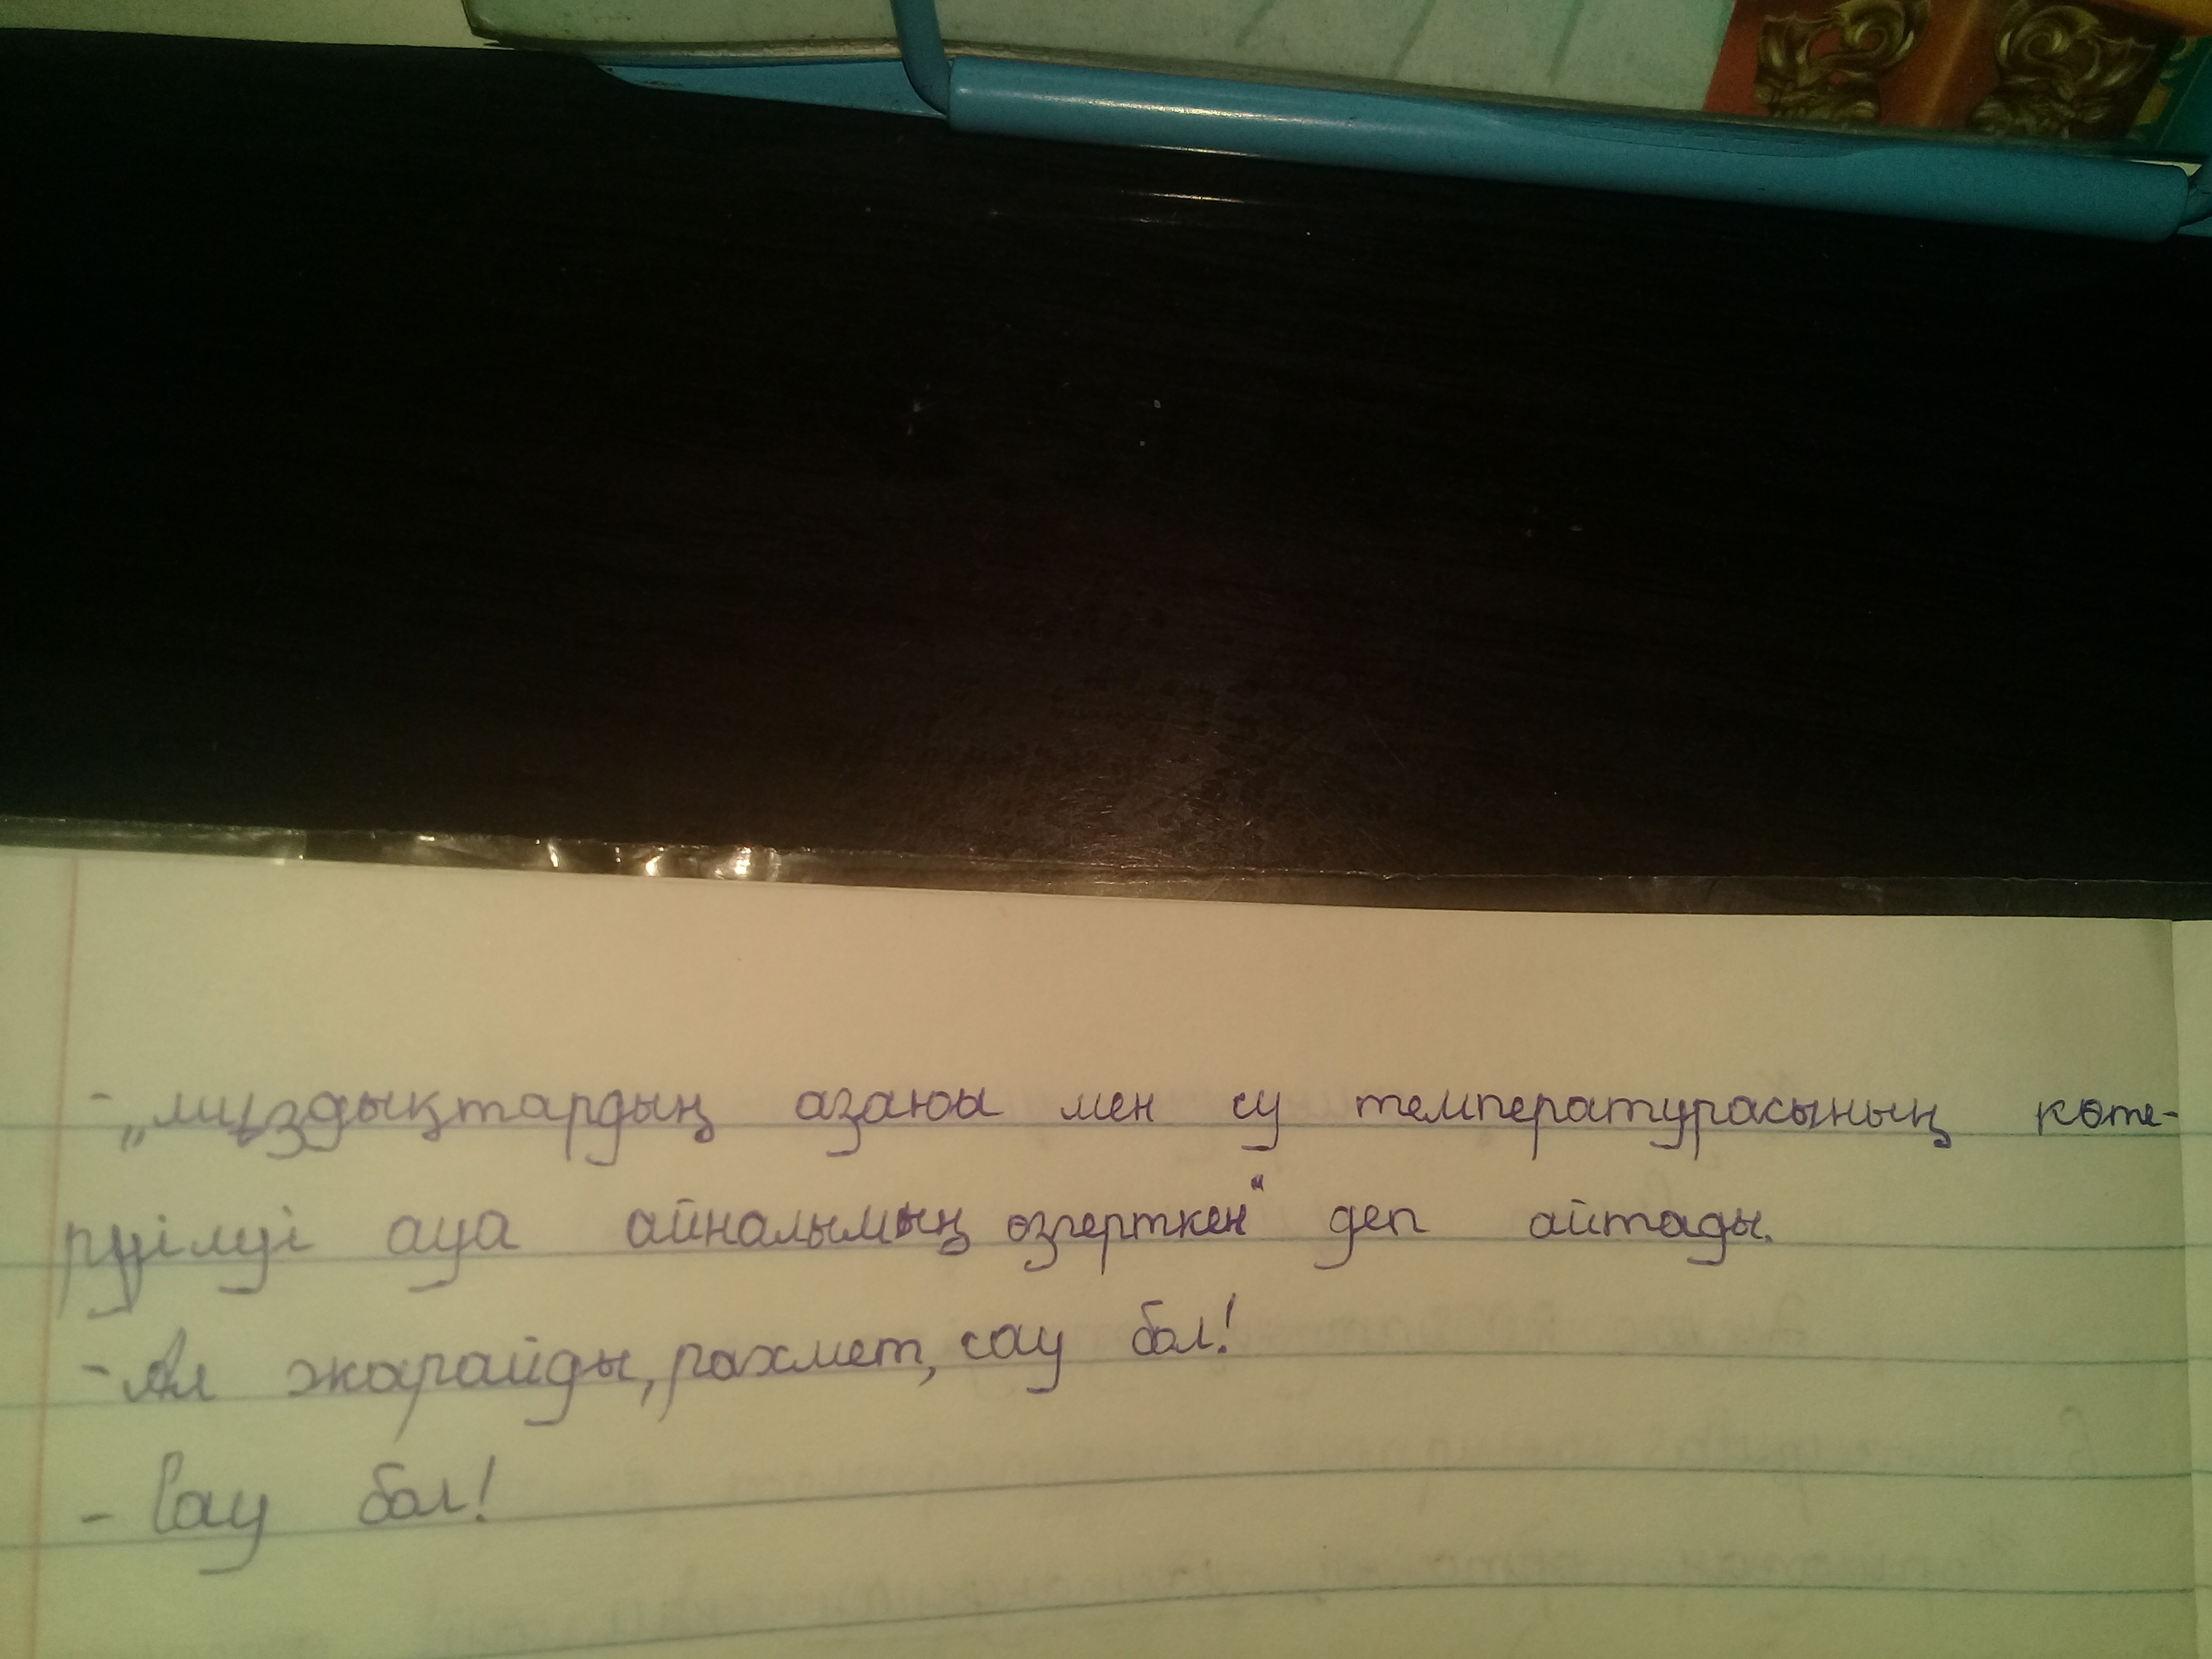 - „мұздықтардың азаюы мен су температурасының көте-
руілуі ауа айналымың өзгерткен" деп айтады.
- Ал жарайды, рахмет, сау бол!
- Сау бол!